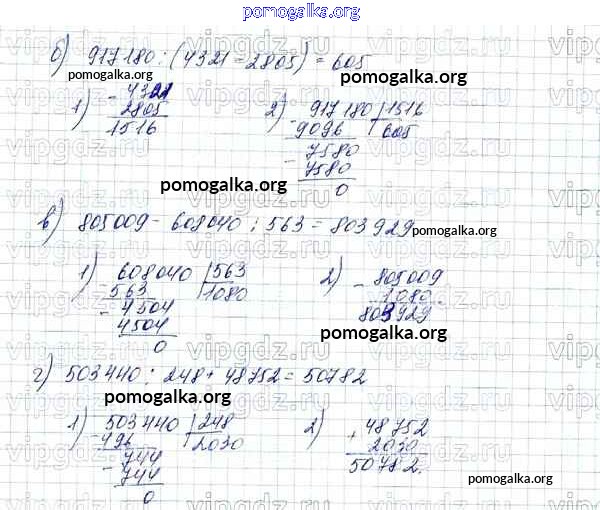 pomogalka.org
б) 917180 : (4321 - 2805) = 605
pomogalka.org pomogalka.org
1) - 4321 2) - 917180 | 1516
2805 9096 605
1516 - 7580
7580
0
pomogalka.org
в) 805009 - 608040 : 563 = 803929
pomogalka.org
1) - 608040 | 563 2) - 805009
563 1080 1080
- 4504 803929
4504
0
pomogalka.org
г) 503440 : 248 + 48752 = 50782
1) - 503440 | 248 2) + 48752
496 2030 2030
- 744 50782.
744
0
pomogalka.org
pomogalka.org
vipgdz.ru